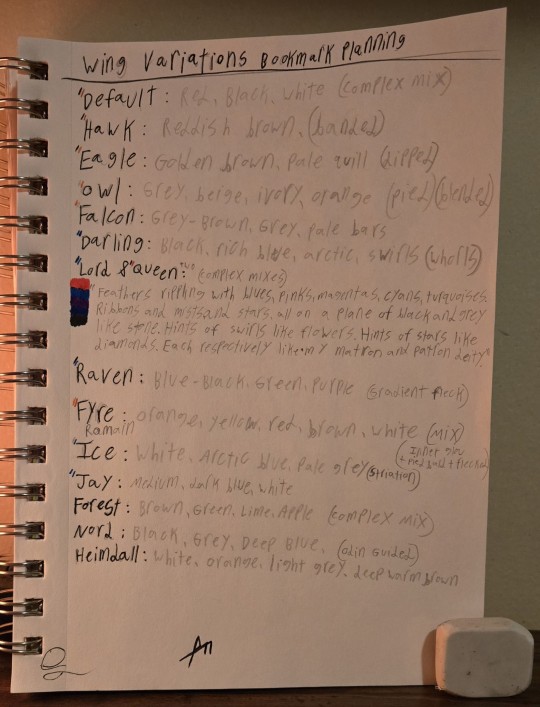 Wing Variations Bookmark Planning
"Default: Red, Black, White (complex mix)
"Hawk: Reddish brown, (banded)
"Eagle: Golden brown, Pale quill (dipped)
"Owl: Grey, beige, ivory, orange (pied)(blended)
"Falcon: Grey-Brown, Grey, pale bars
"Darling: Black, rich blue, arctic, swirls (whorls)
"Lord & "Queen: "two" (complex mixes)
"Feathers rippling with blues, pinks, magentas, cyans, turquoises.
Ribbons and mists and stars, all on a plane of black and grey
like stone. Hints of swirls like flowers. Hints of stars like
diamonds. Each respectively like my matron and patron deity."
"Raven: Blue-Black, Green, Purple (Gradient fleck)
"Fyre: orange, yellow, red, brown, white (mix)
Ramain
"Ice: White, Arctic blue, Pale grey (striation)
(Inner glow
"Jay: Medium, dark blue, white
Forest: Brown, Green, Lime, Apple (complex mix)
Nord: Black, Grey, Deep Blue, (Odin Guided)
Heimdall: White, orange, light grey, deep warm brown